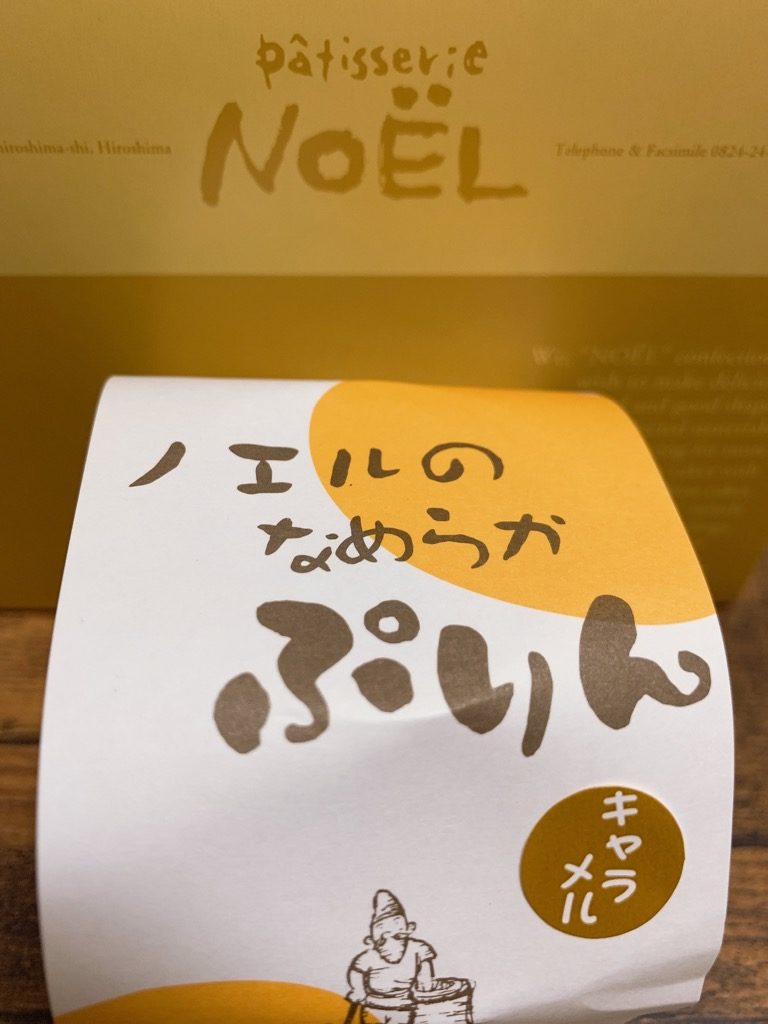 pâtisserie
NOËL
hiroshima-shi, Hiroshima
Telephone & Facsimile 0824-24
We, "NOËL" confection
wish to make delici
ノエルの
なめらか
ぷりん
キャラ
メル